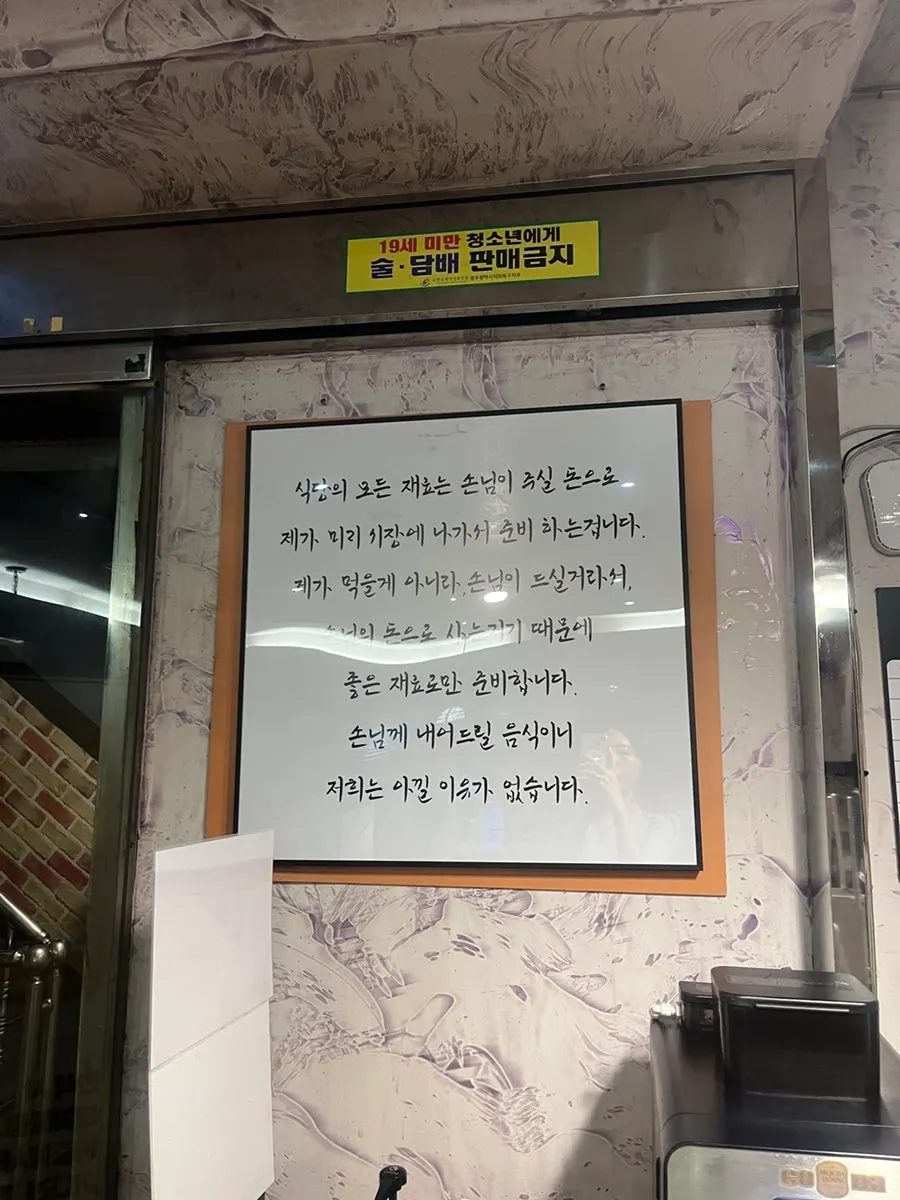 19세 미만 청소년에게
술·담배 판매금지
광주광역시지회북구지부
식당의 모든 재료는 손님이 주실 돈으로
제가 미리 시장에 나가서 준비 하는겁니다.
제가 먹을게 아니라, 손님이 드실거라서,
손님의 돈으로 사는거기 때문에
좋은 재료로만 준비합니다.
손님께 내어드릴 음식이니
저희는 아낄 이유가 없습니다.